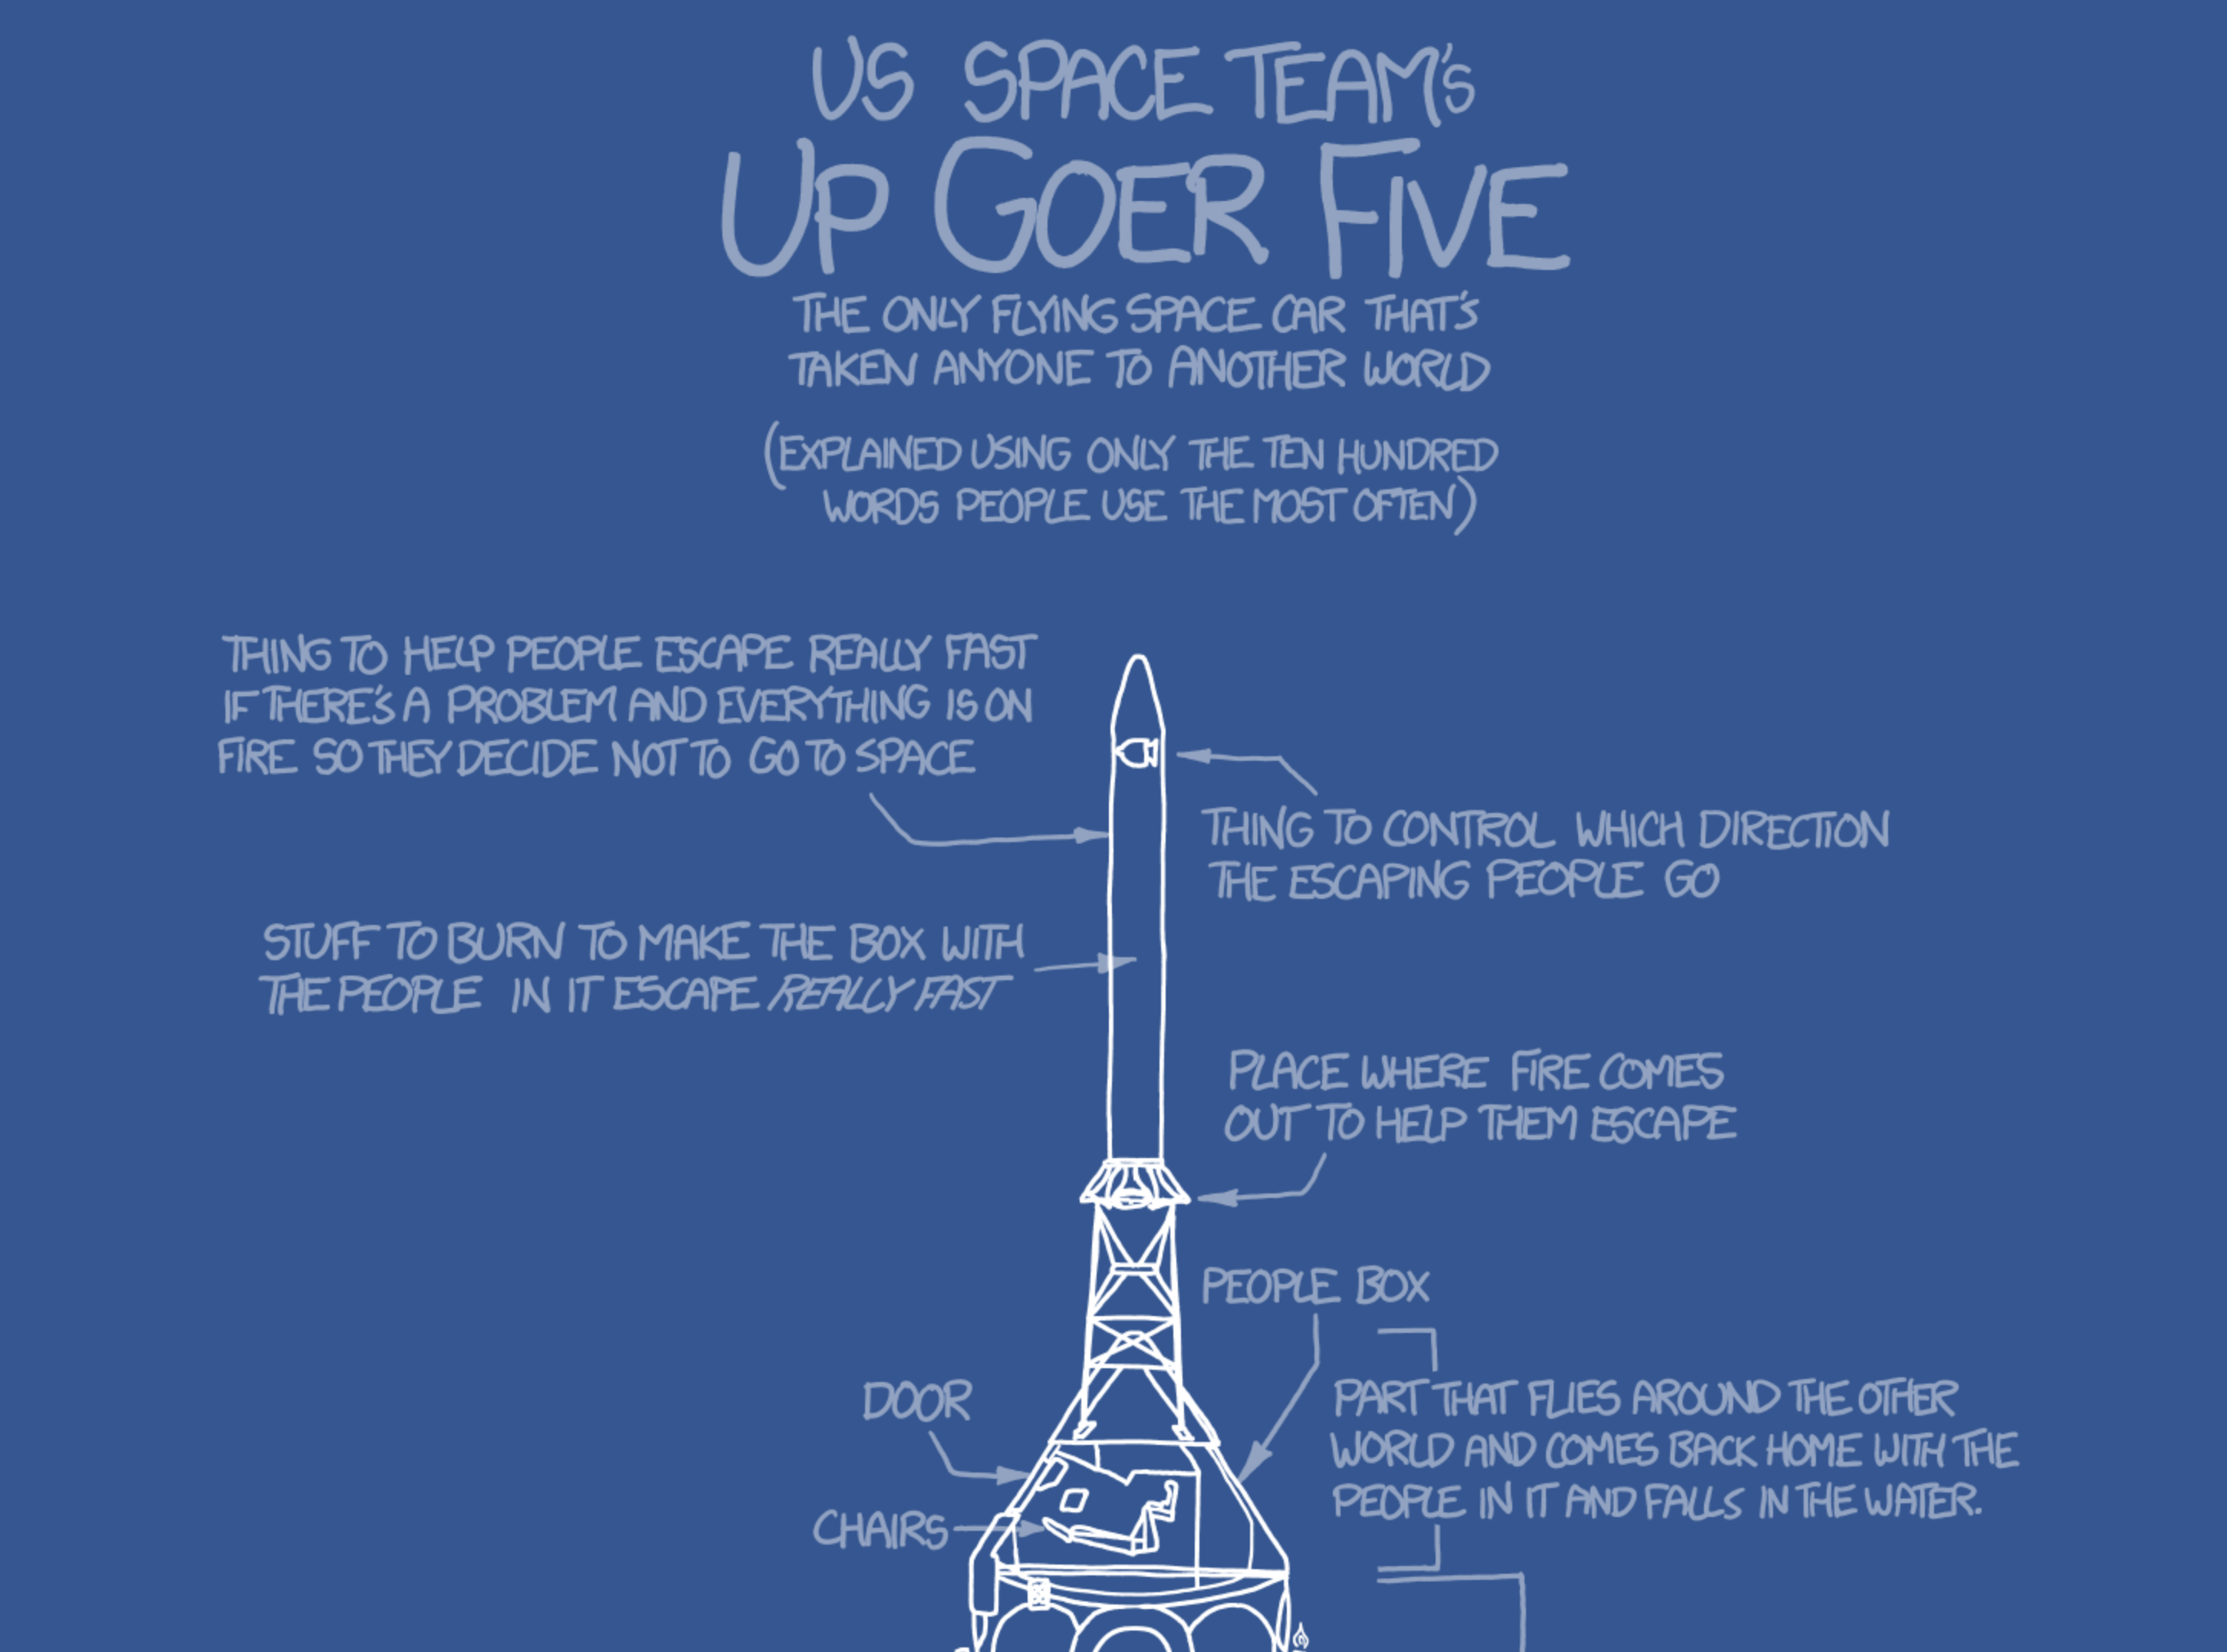 US SPACE TEAM'S
UP GOER FIVE
THE ONLY FLYING SPACE CAR THAT'S
TAKEN ANYONE TO ANOTHER WORLD
(EXPLAINED USING ONLY THE TEN HUNDRED
WORDS PEOPLE USE THE MOST OFTEN)
THING TO HELP PEOPLE ESCAPE REALLY FAST
IF THERE'S A PROBLEM AND EVERYTHING IS ON
FIRE SO THEY DECIDE NOT TO GO TO SPACE
THING TO CONTROL WHICH DIRECTION
THE ESCAPING PEOPLE GO
STUFF TO BURN TO MAKE THE BOX WITH
THE PEOPLE IN IT ESCAPE REALLY FAST
PLACE WHERE FIRE COMES
OUT TO HELP THEM ESCAPE
PEOPLE BOX
DOOR
PART THAT FLIES AROUND THE OTHER
WORLD AND COMES BACK HOME WITH THE
PEOPLE IN IT AND FALLS IN THE WATER.
CHAIRS